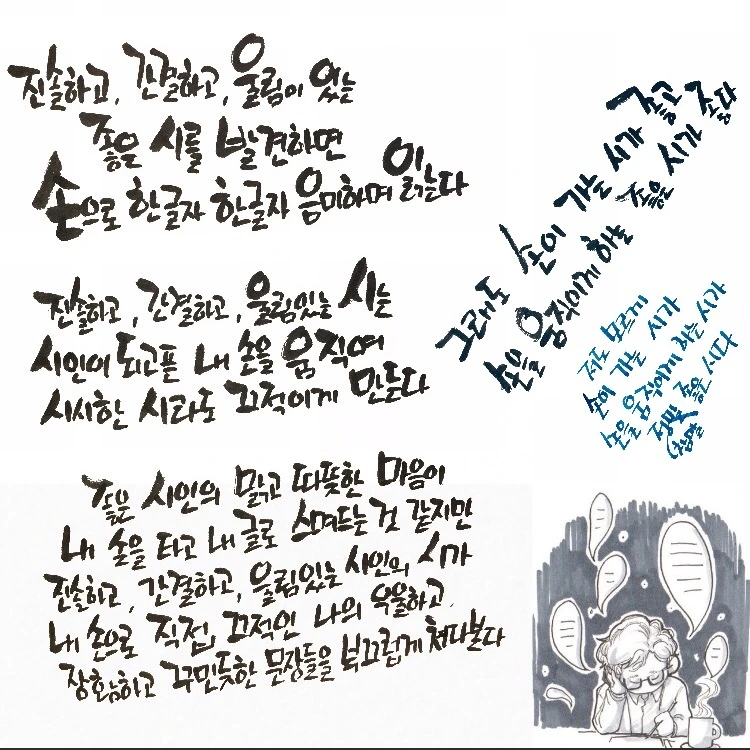 진솔하고, 간결하고, 울림이 있는
좋은 시를 발견하면
손으로 한글자 한글자 음미하며 읽는다
진솔하고, 간결하고, 울림있는 시는
시인이 되고픈 내 손을 움직여
시시한 시라도 끄적이게 만든다
좋은 시인의 맑고 따뜻한 마음이
내 손을 타고 내 글로 스며드는 것 같지만
진솔하고, 간결하고, 울림있는 시인의 시가
내 손으로 직접 끄적인 나의 우울하고,
장황하고 꾸민듯한 문장들을 부끄럽게 쳐다본다
그래도 손이 가는 시가 좋고
손을 움직이게 하는 좋은 시가 좋다
저도 모르게
손이 가는 시가
손을 움직이게 하는 시가
정말 좋은 시다
(정말